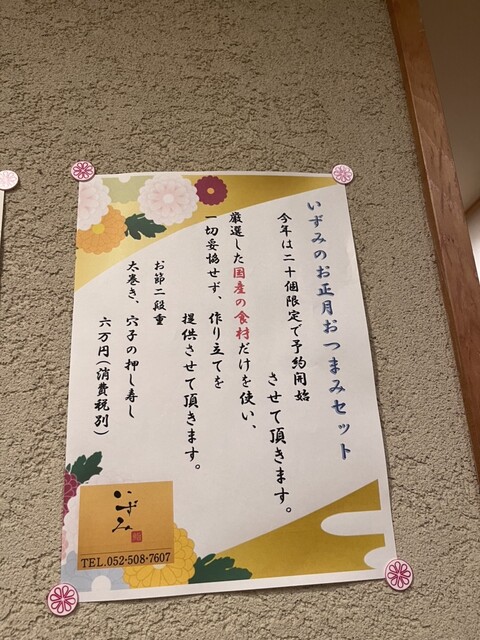 いずみのお正月おつまみセット
今年は二十個限定で予約開始
させて頂きます。
厳選した国産の食材だけを使い、
一切妥協せず、作り立てを
提供させて頂きます。
お節二段重
太巻き、穴子の押し寿し
六万円(消費税別)
いずみ
TEL.052-508-7607